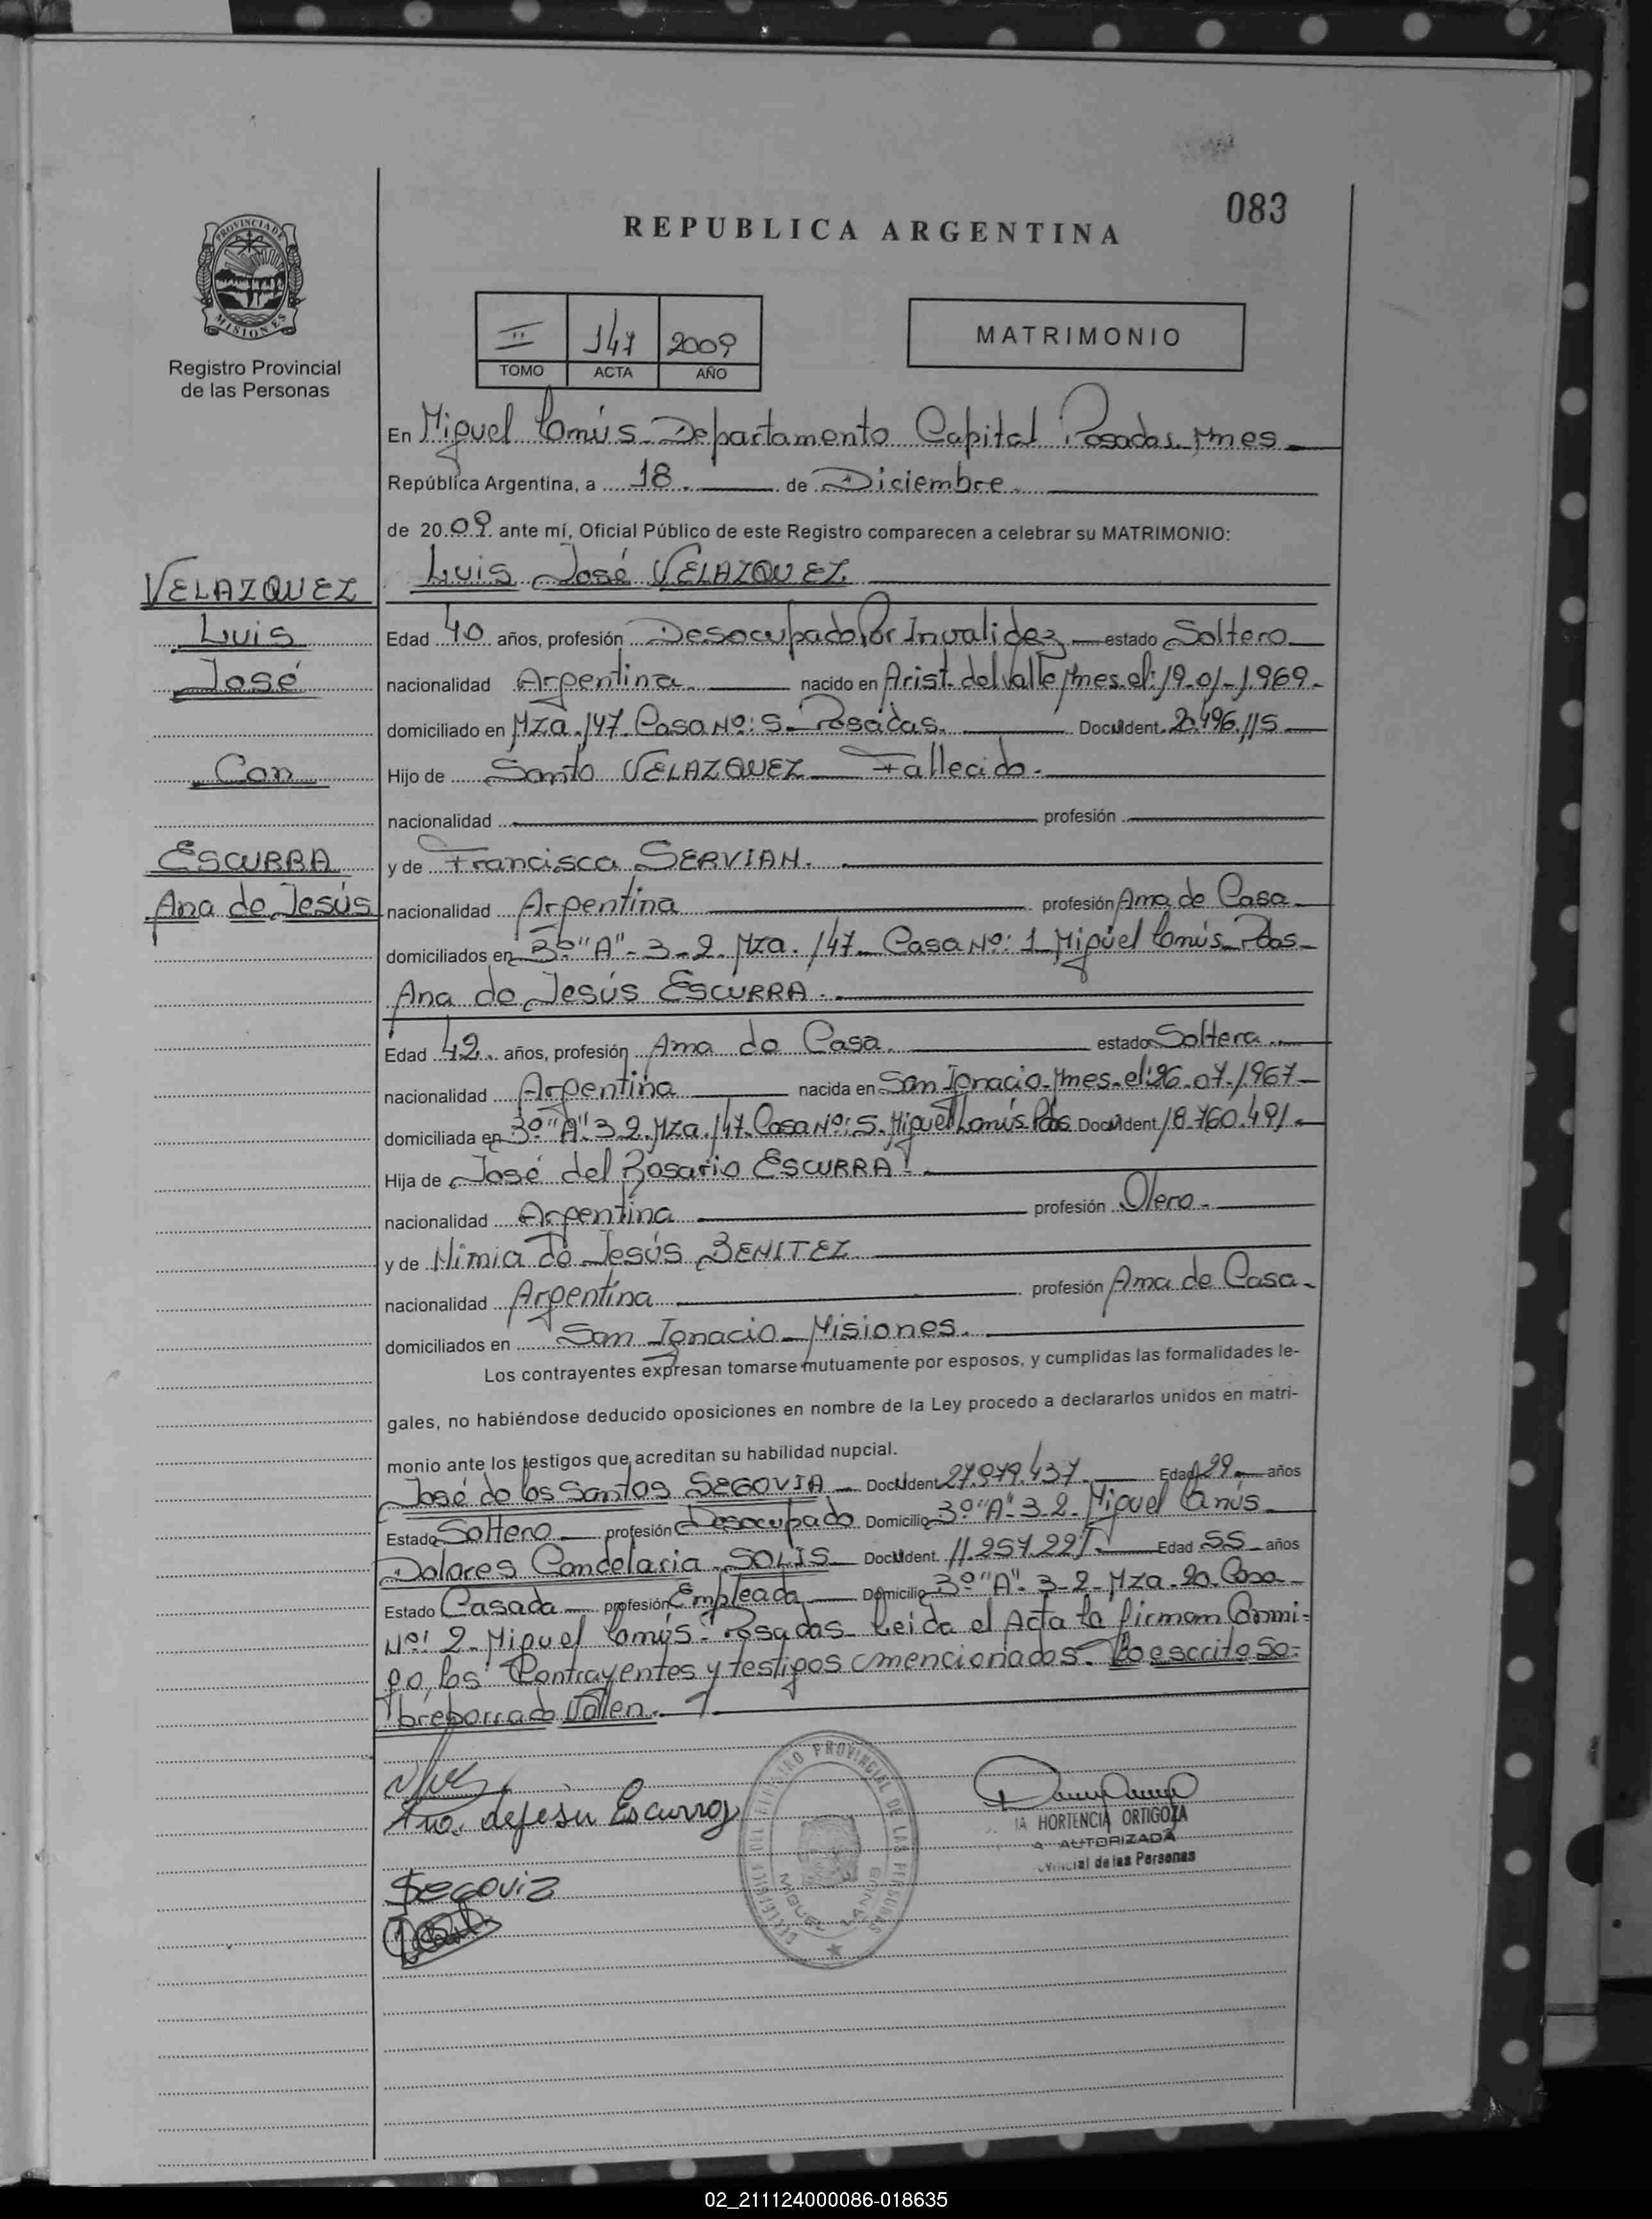 083
REPUBLICA ARGENTINA
PROVINCIA DE
MISIONES
Registro Provincial
de las Personas
II 147 2009
TOMO ACTA AÑO
MATRIMONIO
En Miguel Lanús - Departamento Capital Posadas, Mnes
República Argentina, a 18. de Diciembre.
de 2009. ante mí, Oficial Público de este Registro comparecen a celebrar su MATRIMONIO:
VELAZQUEZ
Luis
José
Con
ESCURRA
Ana de Jesús
Luis José VELAZQUEZ.
Edad 40 años, profesión Desocupado Por Invalidez estado Soltero
nacionalidad Argentina. nacido en Arist. del Valle Mnes. el: 19-01-1.969.
domiciliado en Mza. 147. Casa Nº: 5 - Posadas. Doc. Ident. 20.496.115
Hijo de Santo VELAZQUEZ - Fallecido.
nacionalidad profesión
y de Francisca SERVIAN.
nacionalidad Argentina profesión Ama de Casa
domiciliados en 3º "A" - 3 - 2. Mza. 147 - Casa Nº: 1 Miguel Lanús - Pdas
Ana de Jesús ESCURRA.
Edad 42. años, profesión Ama de Casa. estado Soltera.
nacionalidad Argentina nacida en San Ignacio - Mnes. el: 26-07-1.967
domiciliada en 3º "A" 3 2. Mza. 147. Casa Nº: 5. Miguel Lanús Pdas Doc. Ident. 18.760.491
Hija de José del Rosario ESCURRA.
nacionalidad Argentina profesión Olero.
y de Nimia De Jesús BENITEZ
nacionalidad Argentina profesión Ama de Casa.
domiciliados en San Ignacio - Misiones.
Los contrayentes expresan tomarse mutuamente por esposos, y cumplidas las formalidades le-
gales, no habiéndose deducido oposiciones en nombre de la Ley procedo a declararlos unidos en matri-
monio ante los testigos que acreditan su habilidad nupcial.
José de los Santos SEGOVIA Doc. Ident. 27.979.437. Edad 29 años
Estado Soltero profesión Desocupado Domicilio 3º "A" - 3 - 2 - Miguel Lanús
Dolores Candelaria SOLIS Doc. Ident. 11.257.221. Edad 55 años
Estado Casada profesión Empleada Domicilio 3º "A" - 3 - 2 - Mza. 20. Casa
Nº: 2 - Miguel Lanús - Posadas - Leida el Acta la firman Conmi=
go, los Contrayentes y testigos mencionados. Lo escrito so=
breborrado Valen.
Ana. dejesu Escurra
Segovia
REGISTRO PROVINCIAL DE LAS PERSONAS
MIGUEL LANUS
IA HORTENCIA ORTIGOZA
A AUTORIZADA
vincial de las Personas
02_211124000086-018635